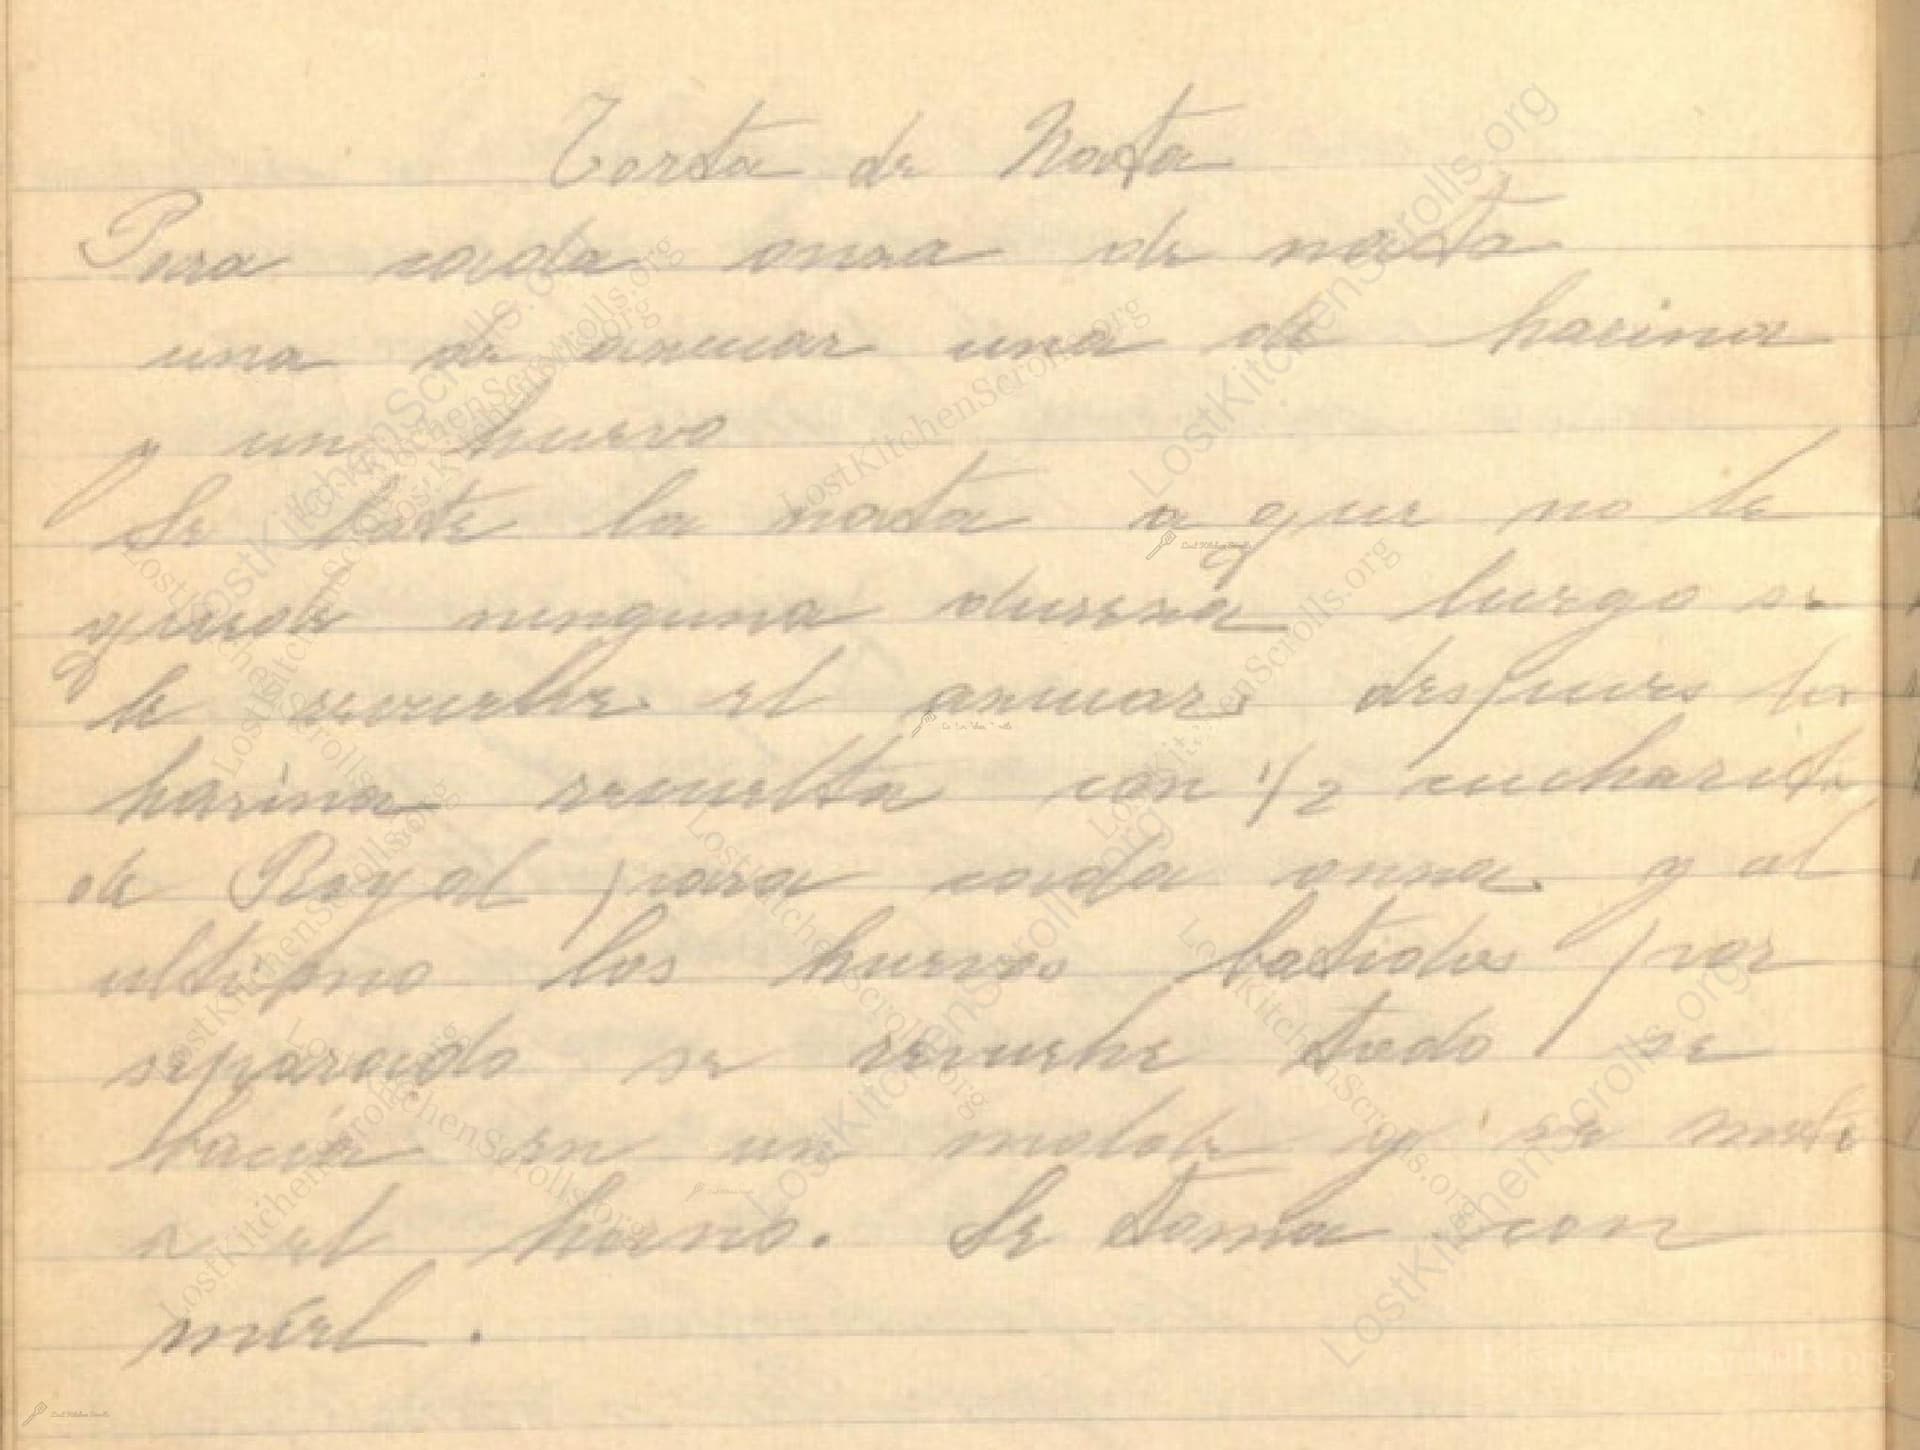 Torta de Nata
Para cada onza de nata
una de azucar una de harina
y un huevo
Se bate la nata a que no le
quede ninguna dureza luego se
le revuelve el azucar despues la
harina revuelta con 1/2 cucharita
de Royal para cada onza y al
ultimo los huevos batidos por
separado se revuelve todo se
bacia en un molde y se mete
a el horno. Se toma con
miel.
LostKitchenScrolls.org